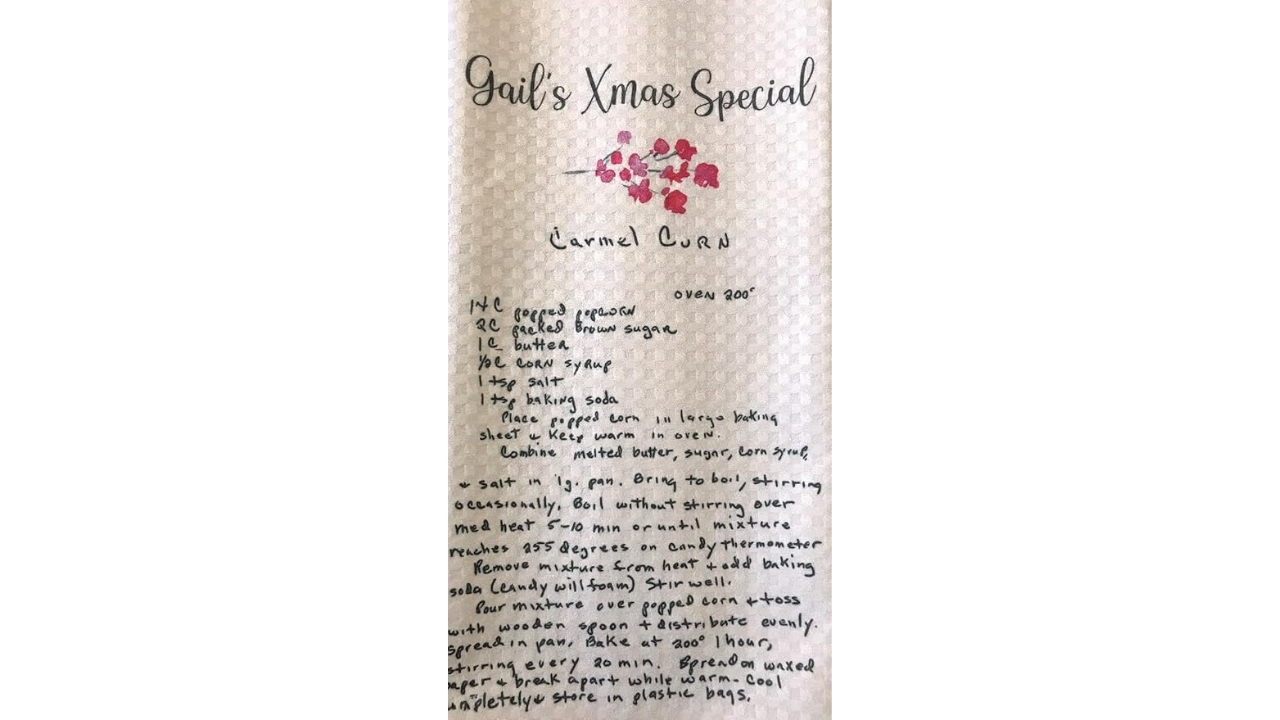 Gail's Xmas Special
Carmel Corn
oven 200°
14 C popped popcorn
2C packed Brown sugar
1 C butter
1/2 C corn syrup
1 tsp salt
1 tsp baking soda
Place popped corn in large baking
sheet & Keep warm in oven.
Combine melted butter, sugar, corn syrup,
& salt in lg. pan. Bring to boil, stirring
occasionally. Boil without stirring over
med heat 5-10 min or until mixture
reaches 255 degrees on candy thermometer
Remove mixture from heat + add baking
soda (candy will foam) Stir well.
Pour mixture over popped corn & toss
with wooden spoon + distribute evenly.
Spread in pan. Bake at 200° 1 hour,
stirring every 20 min. Spread on waxed
paper & break apart while warm. Cool
completely & store in plastic bags.